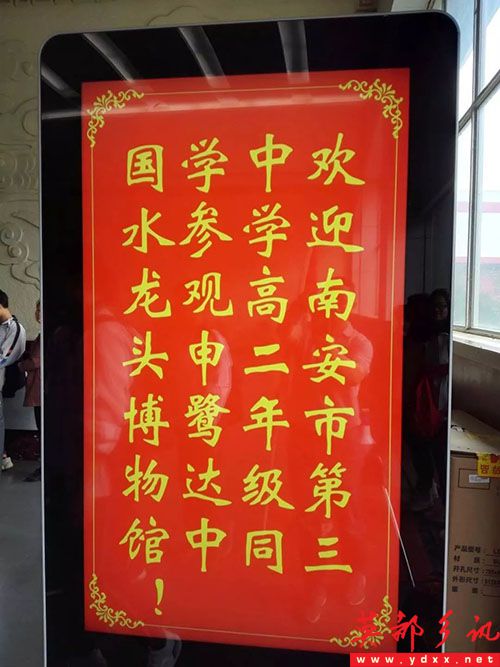 欢迎南安市第三
中学高二年级同
学参观申鹭达中
国水龙头博物馆！
产品型号：
材 质：
开孔尺寸：
外形尺寸：
重 量：
英都乡讯
www.ydxx.net